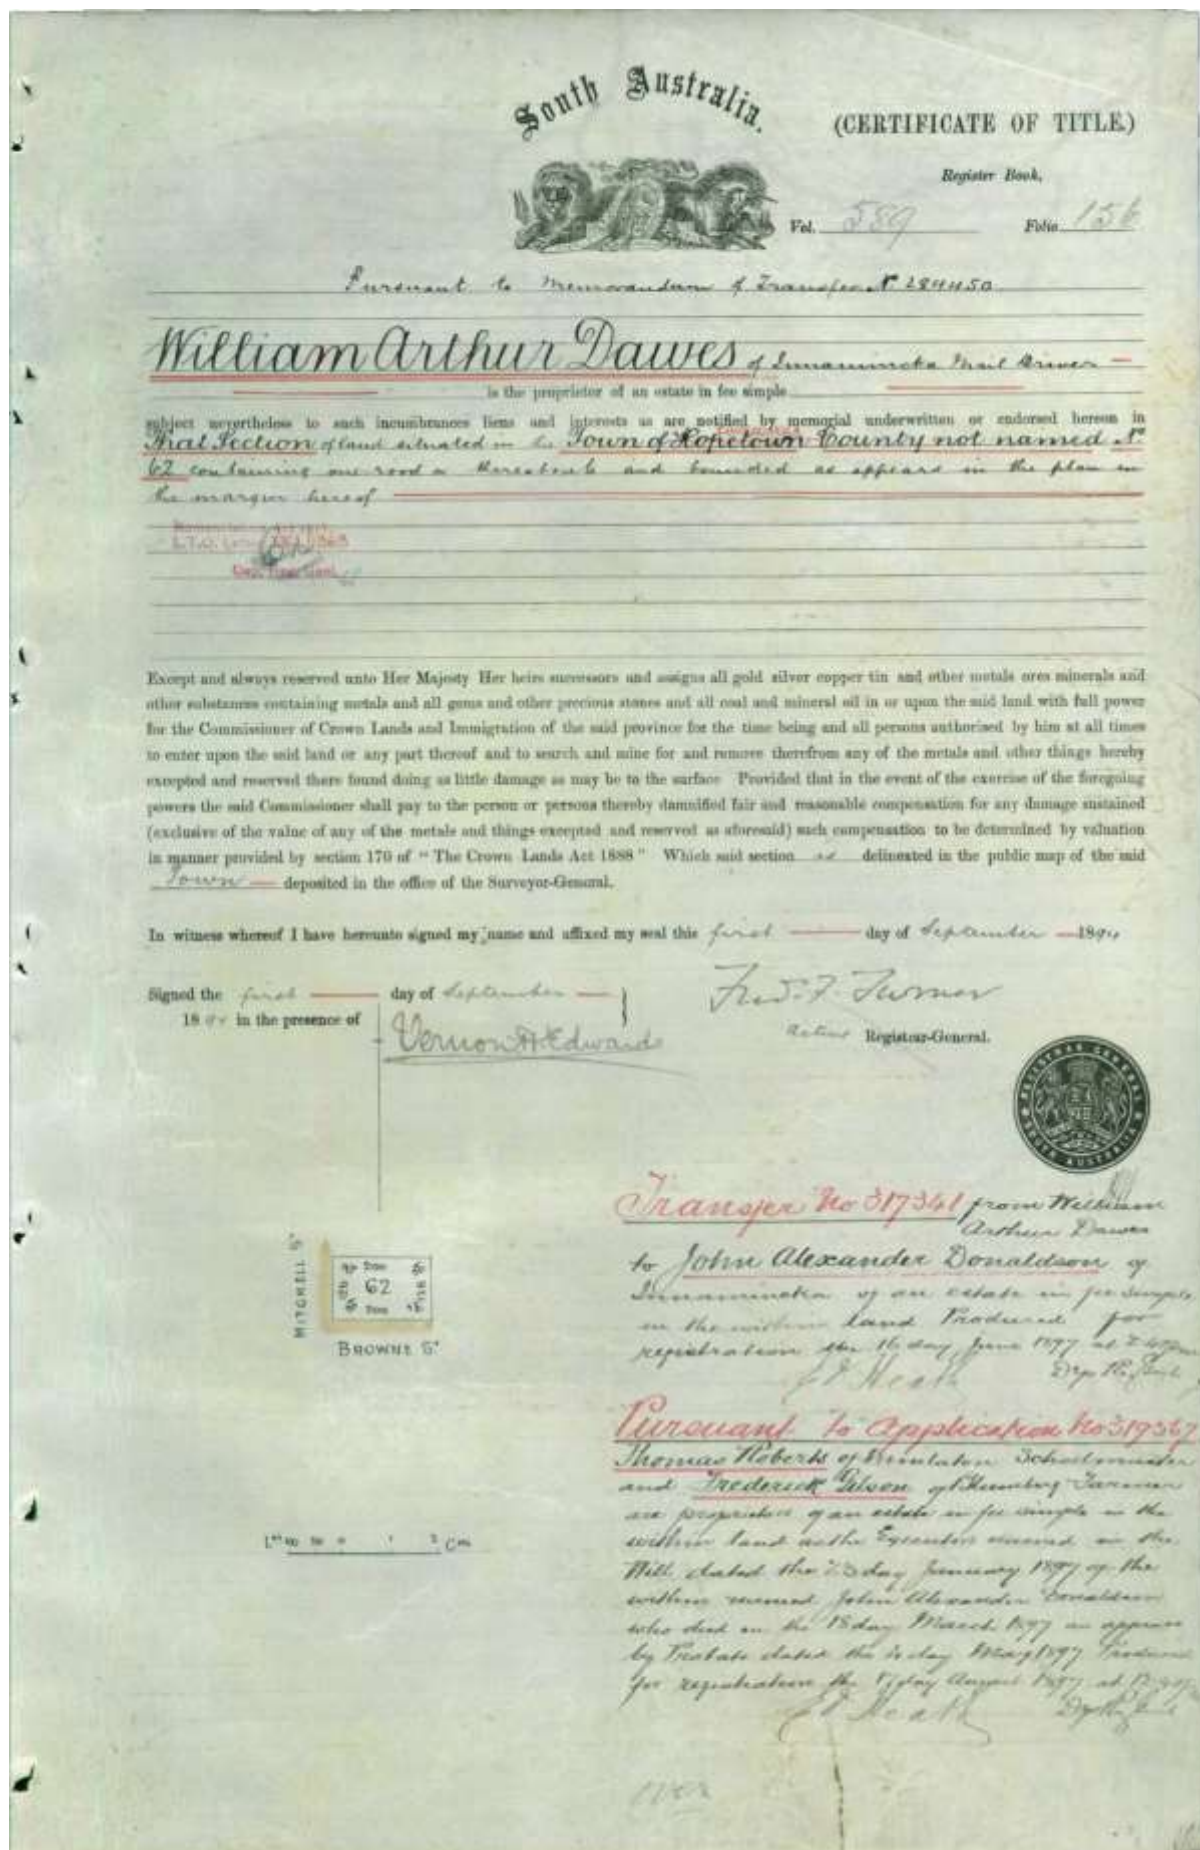 South Australia.
(CERTIFICATE OF TITLE.)
Register Book,
Vol. 589 Folio 156
Pursuant to Memorandum of Transfer No 284450
William Arthur Dawes of Innamincka Mail Driver
is the proprietor of an estate in fee simple
subject nevertheless to such incumbrances liens and interests as are notified by memorial underwritten or endorsed hereon in
that Section of land situated in the Town of Hopetown County not named No
62 containing one rood or thereabouts and bounded as appears in the plan in
the margin hereof
Except and always reserved unto Her Majesty Her heirs successors and assigns all gold silver copper tin and other metals ores minerals and
other substances containing metals and all gems and other precious stones and all coal and mineral oil in or upon the said land with full power
for the Commissioner of Crown Lands and Immigration of the said province for the time being and all persons authorised by him at all times
to enter upon the said land or any part thereof and to search and mine for and remove therefrom any of the metals and other things hereby
excepted and reserved there found doing as little damage as may be to the surface Provided that in the event of the exercise of the foregoing
powers the said Commissioner shall pay to the person or persons thereby damnified fair and reasonable compensation for any damage sustained
(exclusive of the value of any of the metals and things excepted and reserved as aforesaid) such compensation to be determined by valuation
in manner provided by section 170 of "The Crown Lands Act 1888" Which said section is delineated in the public map of the said
Town deposited in the office of the Surveyor-General.
In witness whereof I have hereunto signed my name and affixed my seal this first day of September 189
Signed the first day of September
18 in the presence of
Vernon H Edwards
Fred. F. Turner
Acting Registrar-General.
REGISTRAR GENERAL
SOUTH AUSTRALIA
Transfer No 317341 from William
Arthur Dawes
to John Alexander Donaldson of
Innamincka of an estate in fee simple
in the within land Produced for
registration the 16 day June 1897 at
Dep Reg Genl
MITCHELL ST
62
BROWNE ST
Pursuant to Application No 319367
Thomas Roberts of Schoolmaster
and Frederick Gilson of Farmer
are proprietors of an estate in fee simple in the
within land as the Executors named in the
Will dated the 23 day January 1897 of the
within named John Alexander Donaldson
who died on the 18 day March 1897 as appears
by Probate dated the day May 1897 Produced
for registration the day August 1897 at
Dep Reg Genl
over